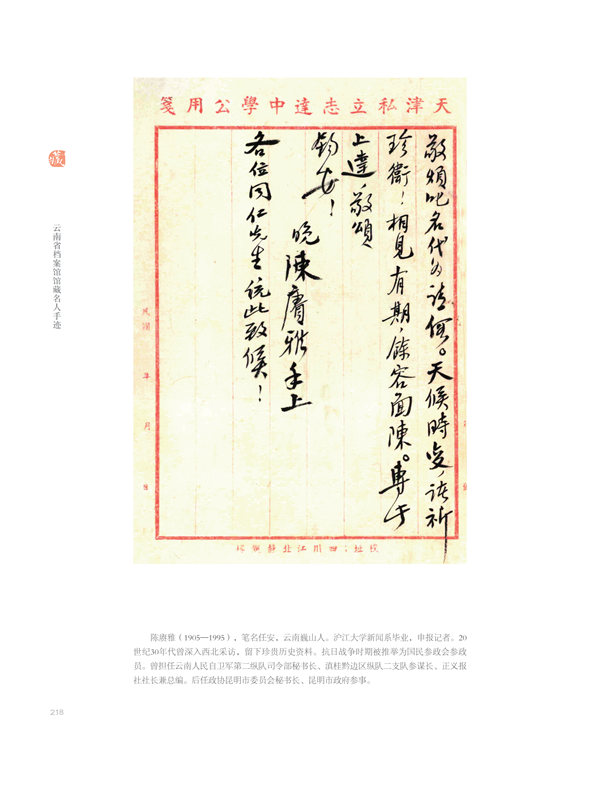 天津私立志達中學公用箋
敬煩叱名代為 天候時變,諸祈
珍衛!相見有期,餘容面陳。專此
上達,敬頌
鈞安!
晚陳賡雅手上
各位同仁先生統此致候!
民國 年 月 日
校址:四川江北靜觀場
藏
云南省档案馆馆藏名人手迹
陈赓雅(1905—1995),笔名任安,云南巍山人。沪江大学新闻系毕业,申报记者。20
世纪30年代曾深入西北采访,留下珍贵历史资料。抗日战争时期被推举为国民参政会参政
员。曾担任云南人民自卫军第二纵队司令部秘书长、滇桂黔边区纵队二支队参谋长、正义报
社社长兼总编。后任政协昆明市委员会秘书长、昆明市政府参事。
218